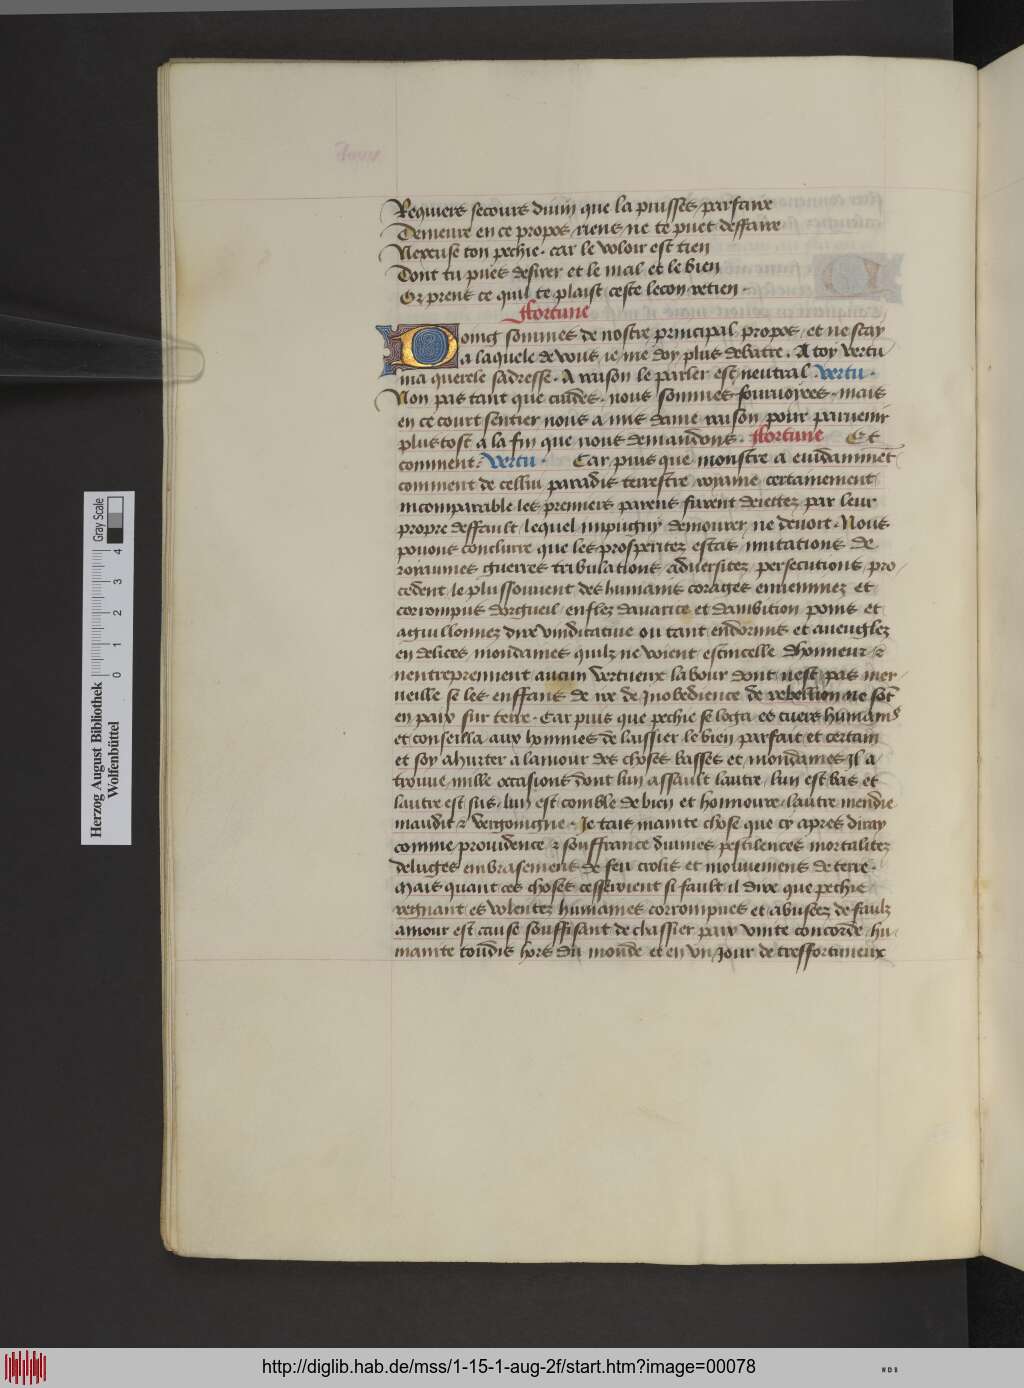 Requiers secours diuin que la puisses parfaire
Demeure en ce propos riens ne te puet deffaire
Nexcuse ton pechie . car le voloir est tien
Dont tu pues desirer et le mal et le bien
Or prens ce quil te plaist ceste lecon retien .
ffortune
Loing sommes de nostre principal propos / et ne scay
a laquele de vous ie me doy plus debatre . A toy vertu
ma querele sadresse . A raison le parler est neutral . vertu .
Non pas tant que cuides . nous sommes fouruoyees . mais
en ce court sentier nous a mis dame raison pour paruenir
plustost a la fin que nous demandons . ffortune Et
comment . vertu . Car puis que monstre a euidamment
comment de cellui paradis terrestre royame certainement
incomparable les premiers parens furent deiettez par leur
propre deffault / lequel impugny demourer ne deuoit . Nous
pouons conclurre que les prosperitez estas mutations de
royaumes guerres tribulations aduersitez persecutions pro
cedent le plussouuent des humains corages enueniniez et
corrompus dorgueil / enflez dauarice et dambition poins et
aguillonnez dire vindicatiue ou tant endormis et aueuglez
en delices mondames quilz ne voient estincelle dhonneur /
nentreprennent aucun vertueux labour dont nest pas mer
ueille se les enffans de ire de Inobedience de rebellion ne sont
en paix sur terre . Car puis que pechie se loga es cuers humains
et conseilla aux hommes de laissier le bien parfait et certain
et soy ahurter a lamour des choses basses et mondaines Il a
trouue mille occasions dont lun assault lautre / lun est bas et
lautre est sus / lun est comble de bien et honnoure / lautre mendie
maudit et vergoingne . Je tais mainte chose que cy apres diray
comme prouidence et souffrance diuines pestilences mortalitez
deluges embrasemens de feu crolis et mouuemens de terre .
Mais quant ces choses cesseroient si fault il dire que pechie
regnant es volentez humaines corrompues et abusees de faulx
amour est cause souffisant de chassier paix vnite concorde / hu
manite toudis hors du monde et en vn jour de tresfortuneux
Herzog August Bibliothek
Wolfenbüttel
Gray Scale
0 1 2 3 4
http://diglib.hab.de/mss/1-15-1-aug-2f/start.htm?image=00078